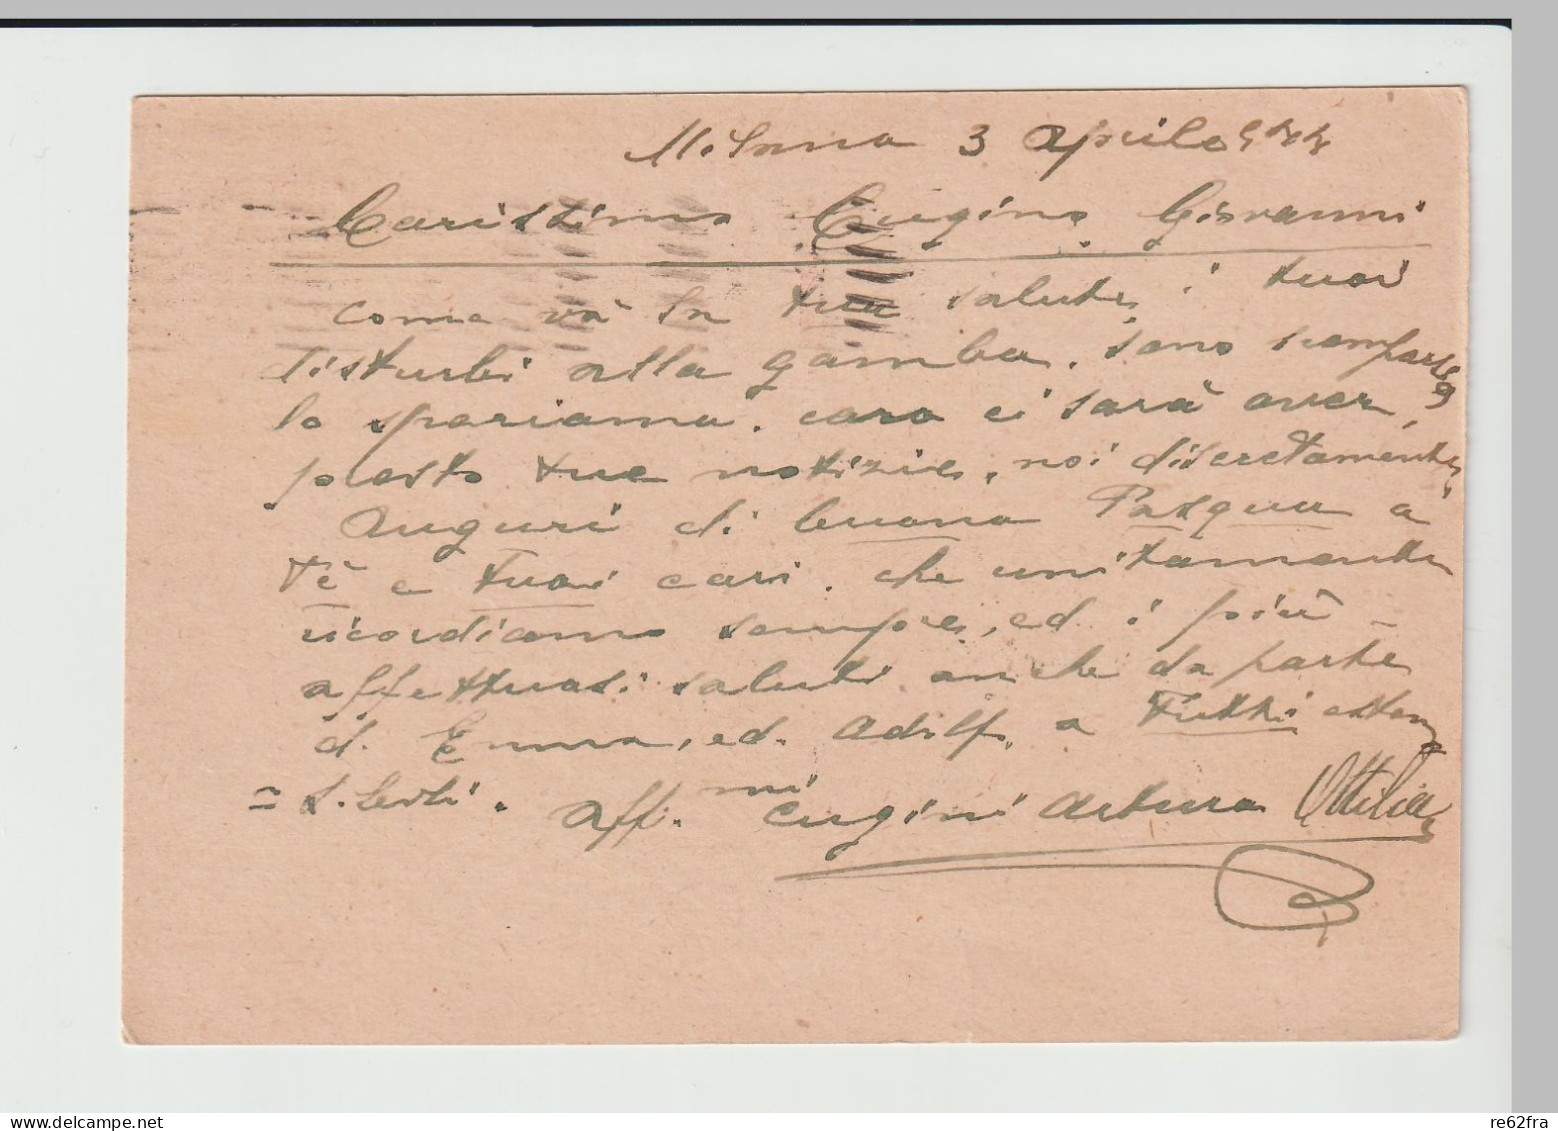 Milano 3 Aprile 944
Carissimo Cugino Giovanni
come và la tua salute, i tuoi
disturbi alla gamba, sono scomparsi?
lo speriamo. caro ci sarà aver
presto tue notizie, noi discretamente,
Auguri di buona Pasqua a
Tè e tuoi cari. che unitamente
ricordiamo sempre, ed i più
affettuosi saluti anche da parte
di Emma, ed. Adolf. a Tutti
aff.mi cugini Arturo Ottilia
re62fra